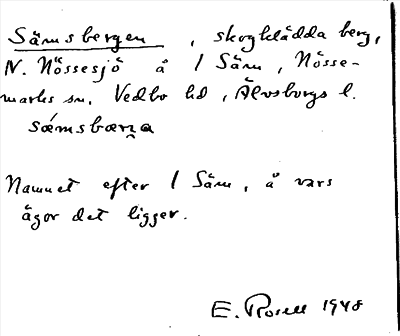 Särnsbergen, skogklädda berg,
N. Nössesjö å 1 Särn, Nösse-
marks sn, Vedbo hd, Älvsborgs l.
sæ̀msbæṛṇa
Namnet efter 1 Särn, å vars
ägor det ligger.
E. Rosell 1948